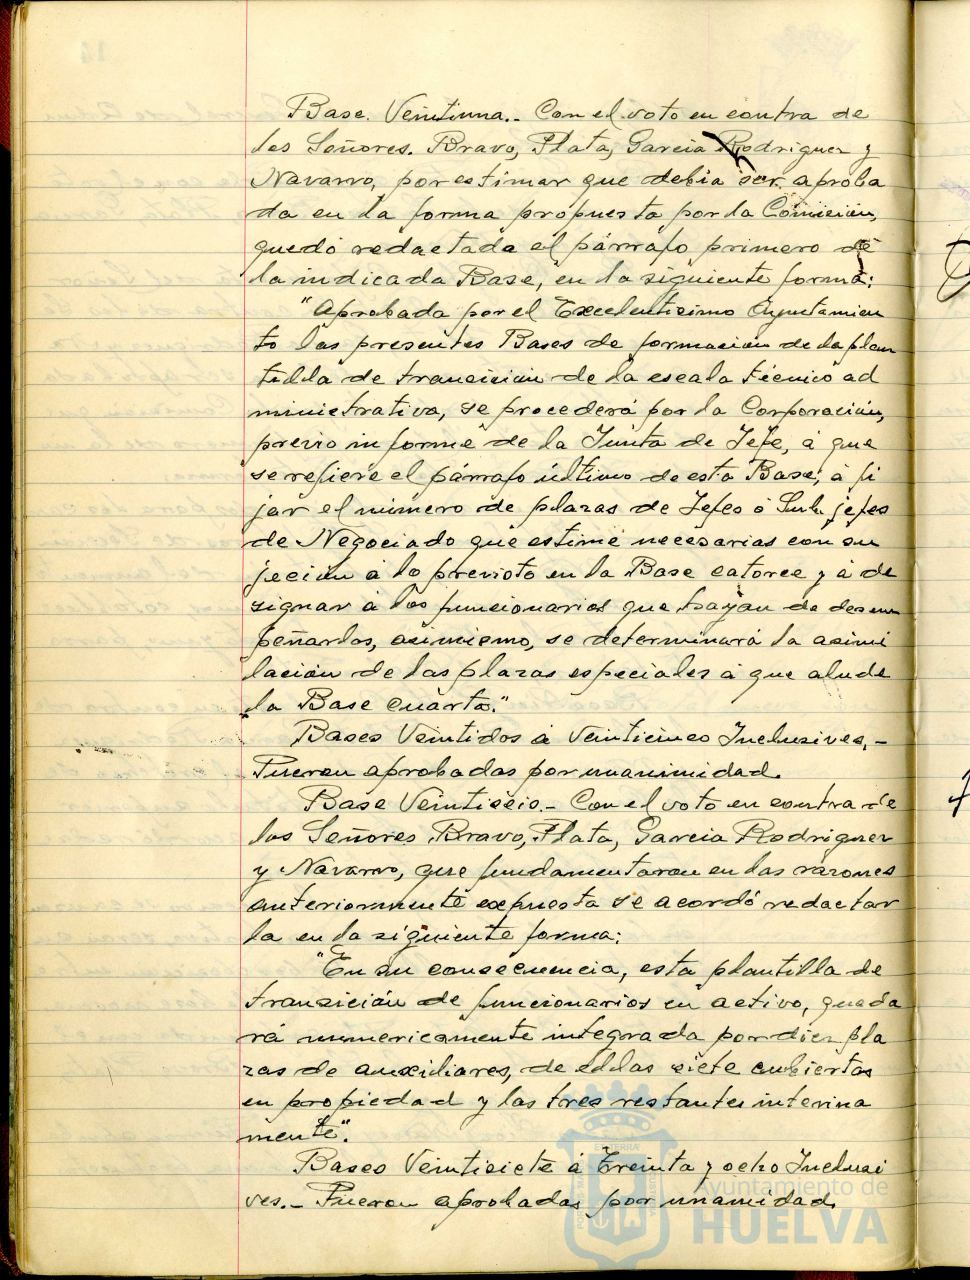 Base. Veintiuna.. Con el voto en contra de
los Señores. Bravo, Plata, Garcia Rodriguez y
Navarro, por estimar que debia ser aproba
da en la forma propuesta por la Comision,
quedó redactada el párrafo primero de
la indicada Base, en la siguiente forma:
"Aprobada por el Excelentisimo Ayuntamien
to las presentes Bases de formacion de la plan
tilla de transicion de la escala técnico ad
ministrativa, se procederá por la Corporacion,
previo informe de la Junta de Jefe, á que
se refiere el párrafo último de esta Base, á fi
jar el número de plazas de Jefes ó Sub jefes
de Negociado que estime necesarias con su
jecion á lo previsto en la Base catorce y á de
signar á los funcionarios que hayan de desem
peñarlos, asimismo, se determinará la asimi
lacion de las plazas especiales á que alude
la Base cuarta."
Bases Veintidos á Veinticinco Inclusives,-
Fueron aprobadas por unanimidad.
Base Veintiseis.- Con el voto en contra de
los Señores Bravo, Plata, Garcia Rodriguez
y Navarro, que fundamentaron en las razones
anteriormente expuesta se acordó redactar
la en la siguiente forma:
"En su consecuencia, esta plantilla de
transicion de funcionarios en activo, queda
rá numericamente integrada por diez pla
zas de auxiliares, de ellas siete cubiertas
en propiedad y las tres restantes interina
mente".
Bases Veintisiete á Treinta y ocho Inclusi
ves.- Fueron aprobadas por unamidad.
Ayuntamiento de
HUELVA